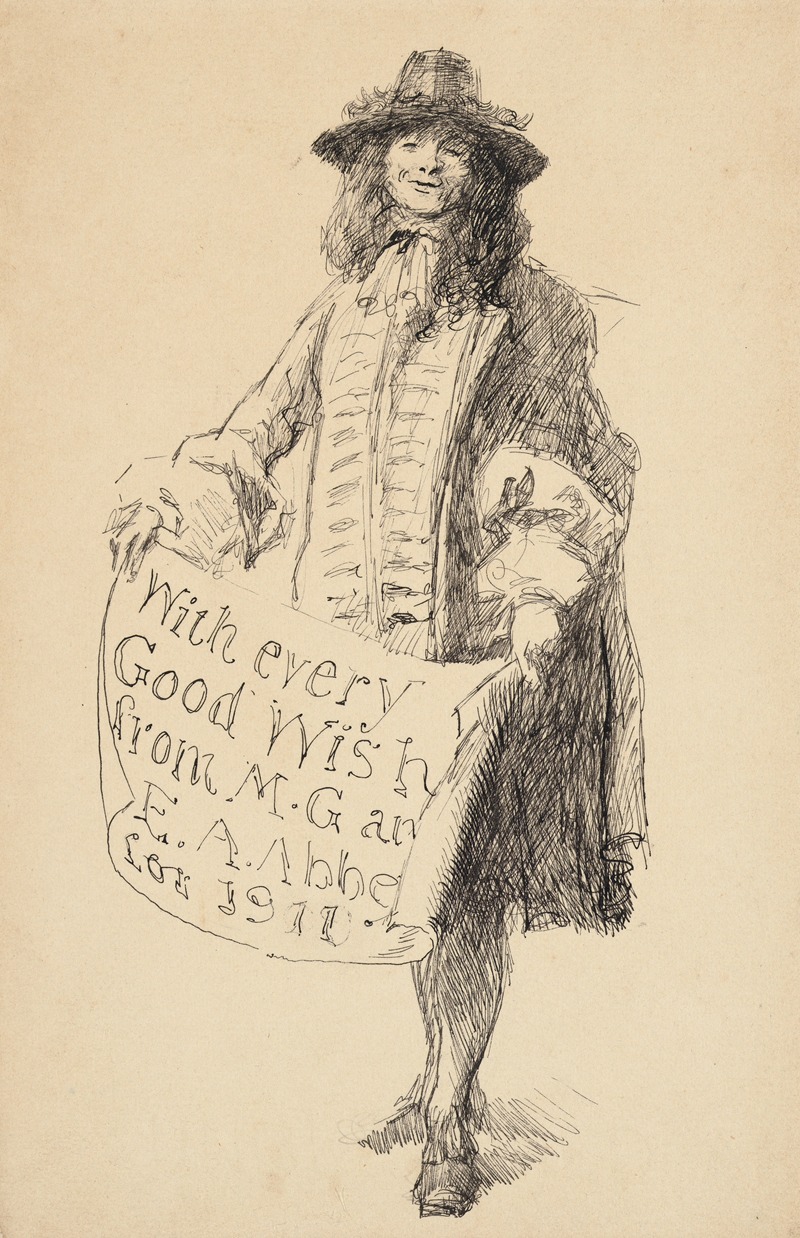 With every
Good Wish
from M.G an
E. A. Abbe
for 1911.